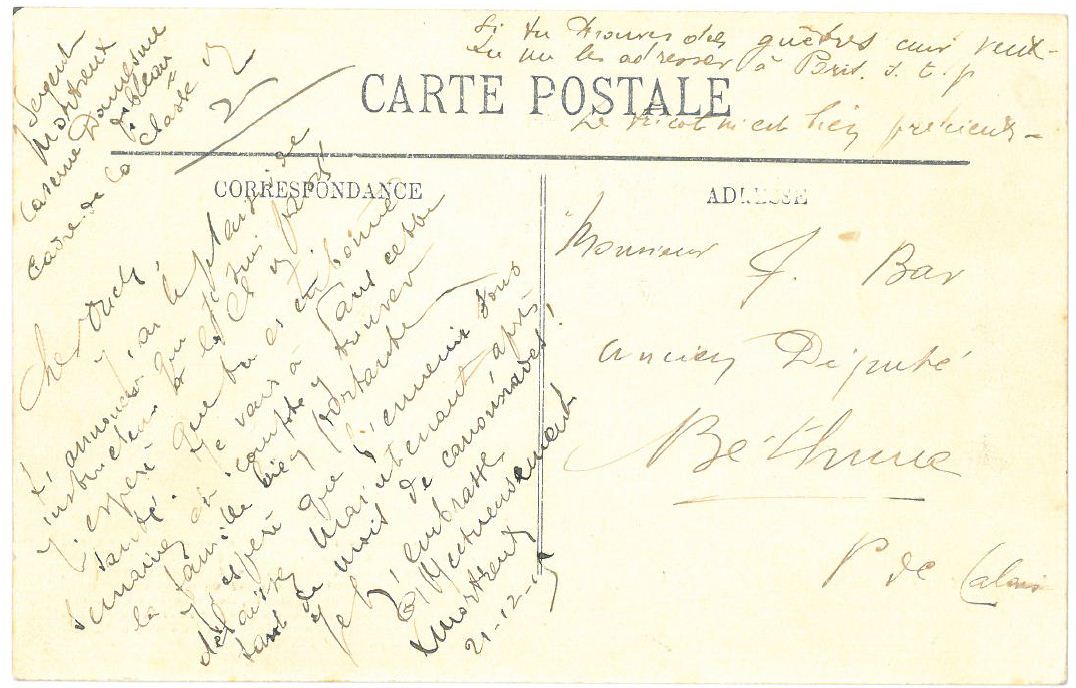 Si tu trouves des guêtres cuir veux-
tu me les adresser à Paris. s. t. p
CARTE POSTALE
Le tricot m'est bien précieux -
Sergent
Mortreux
Caserne Damesme
f. bleau
Cadre de la Classe 17
CORRESPONDANCE
Cher Oncle,
J'ai le plaisir de
t'annoncer que je suis
instructeur à la Cl 17
J'espère que tu es en bonne
santé. Je vais à Paris cette
semaine et compte y trouver
la famille bien portante
J'espère que l'ennemi vous
délaisse maintenant après
tant de mois de canonnades!
Je t'embrasse
affectueusement
Mortreux
21-12-15
ADRESSE
Monsieur J. Bar
ancien Député
Béthune
P. de Calais